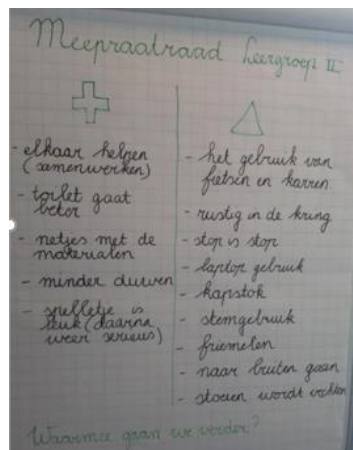 Meepraatraad Leergroep II
- elkaar helpen
(samenwerken)
- toilet gaat
beter
- netjes met de
materialen
- minder duwen
- spelletje is
leuk (daarna
weer serieus)
- het gebruik van
fietsen en karren
- rustig in de kring
- stop is stop
- laptop gebruik
- kapstok
- stemgebruik
- friemelen
- naar buiten gaan
- stoeien wordt vechten
Waarmee gaan we verder?